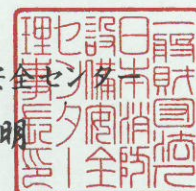 全センター
明
一般財団法人
日本消防
設備安全
センター
理事長印